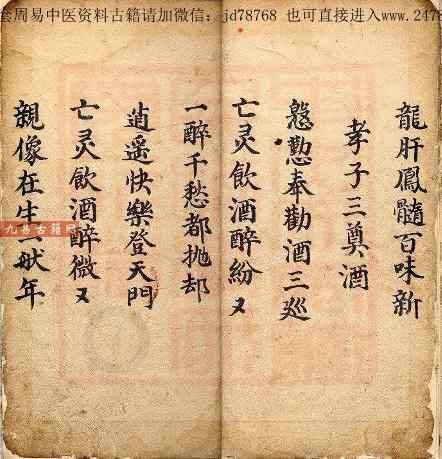 套周易中医资料古籍请加微信：jd78768 也可直接进入www.247
龍肝鳳髓百味新
孝子三奠酒
慇懃奉勸酒三廵
亡灵飲酒醉紛又
一醉千愁都抛却
逍遥快樂登天門
亡灵飲酒醉微又
親像在生一般年
九易古籍网